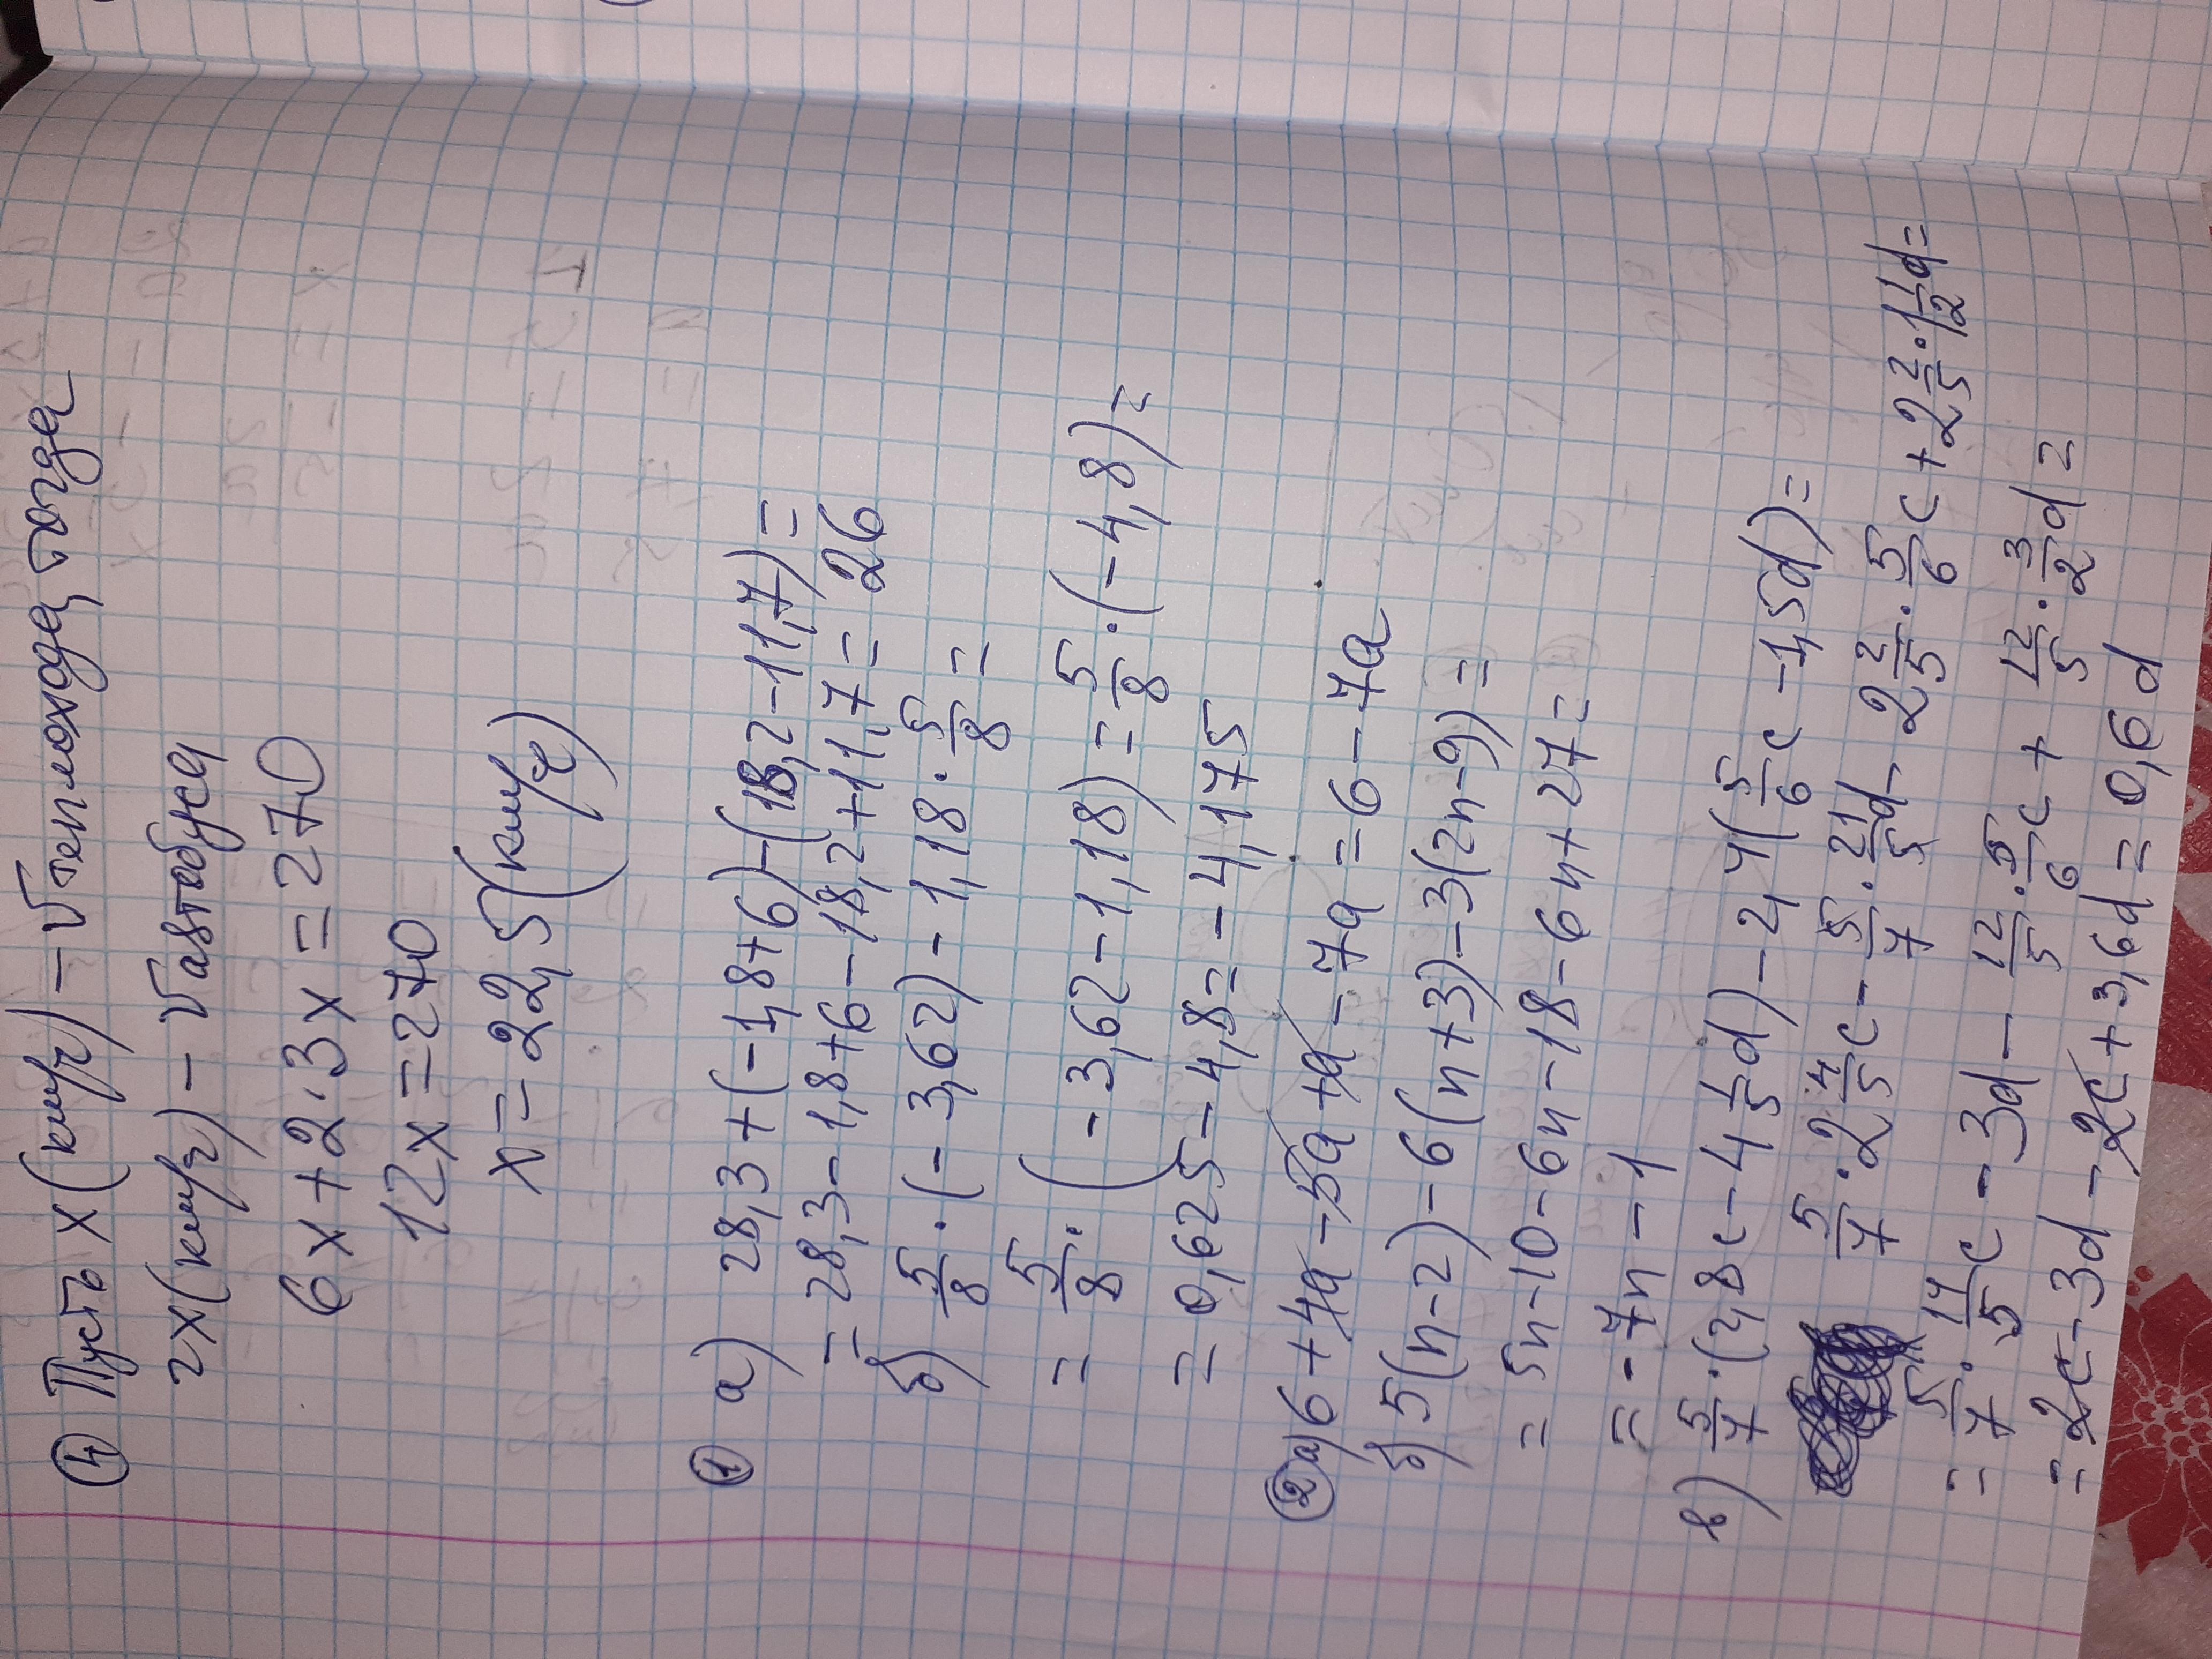 ④ Пусть х (км/ч) – Vтеплохода, тогда
2х (км/ч) – Vавтобуса
6х + 2·3х = 270
12х = 270
х = 22,5 (км/ч)
① а) 28,3 + (-1,8+6) - (18,2-11,7) =
= 28,3 - 1,8 + 6 - 18,2 + 11,7 = 26
б) 5/8 · (-3,62) - 1,18 · 5/8 =
= 5/8 · (-3,62 - 1,18) = 5/8 · (-4,8) =
= 0,625 - 4,8 = -4,175
② а) 6 + 4а - 5а + а - 7а = 6 - 7а
б) 5(n-2) - 6(n+3) - 3(2n-9) =
= 5n - 10 - 6n - 18 - 6n + 27 =
= -7n - 1
в) 5/7 · (2,8c - 4 1/5 d) - 2,4(5/6 c - 1,5d) =
5/7 · 2 4/5 c - 5/7 · 21/5 d - 2 2/5 · 5/6 c + 2 2/5 · 1 1/2 d =
= 5/7 · 14/5 c - 3d - 12/5 · 5/6 c + 12/5 · 3/2 d =
= 2c - 3d - 2c + 3,6d = 0,6d